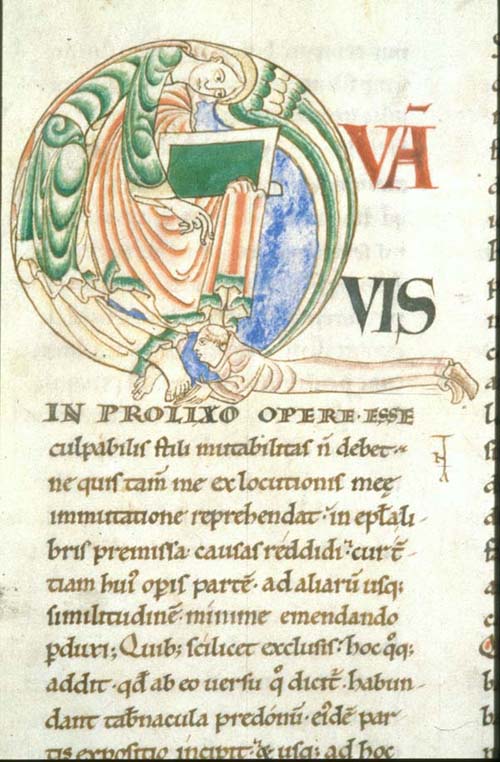 QVĀ
VIS
IN PROLIXO OPERE·ESSE
culpabilis stili mutabilitas n̄ debet·
ne quis tam̄ me ex locutionis meę
immutatione reprehendat· in epłali
bris premissa causas reddidi· cur t̄
tiam hui' opis partē· ad aliarū usq;
similitudinē· minime emendando
ꝑduxi; Quib; scilicet exclusis· hoc q̊q;
addit̄· qđ ab eo uersu q̊ dicit̄· habun
dant tab̄nacula predonū· ei'dē par
tis expositio incipit· & usq; ad hoc